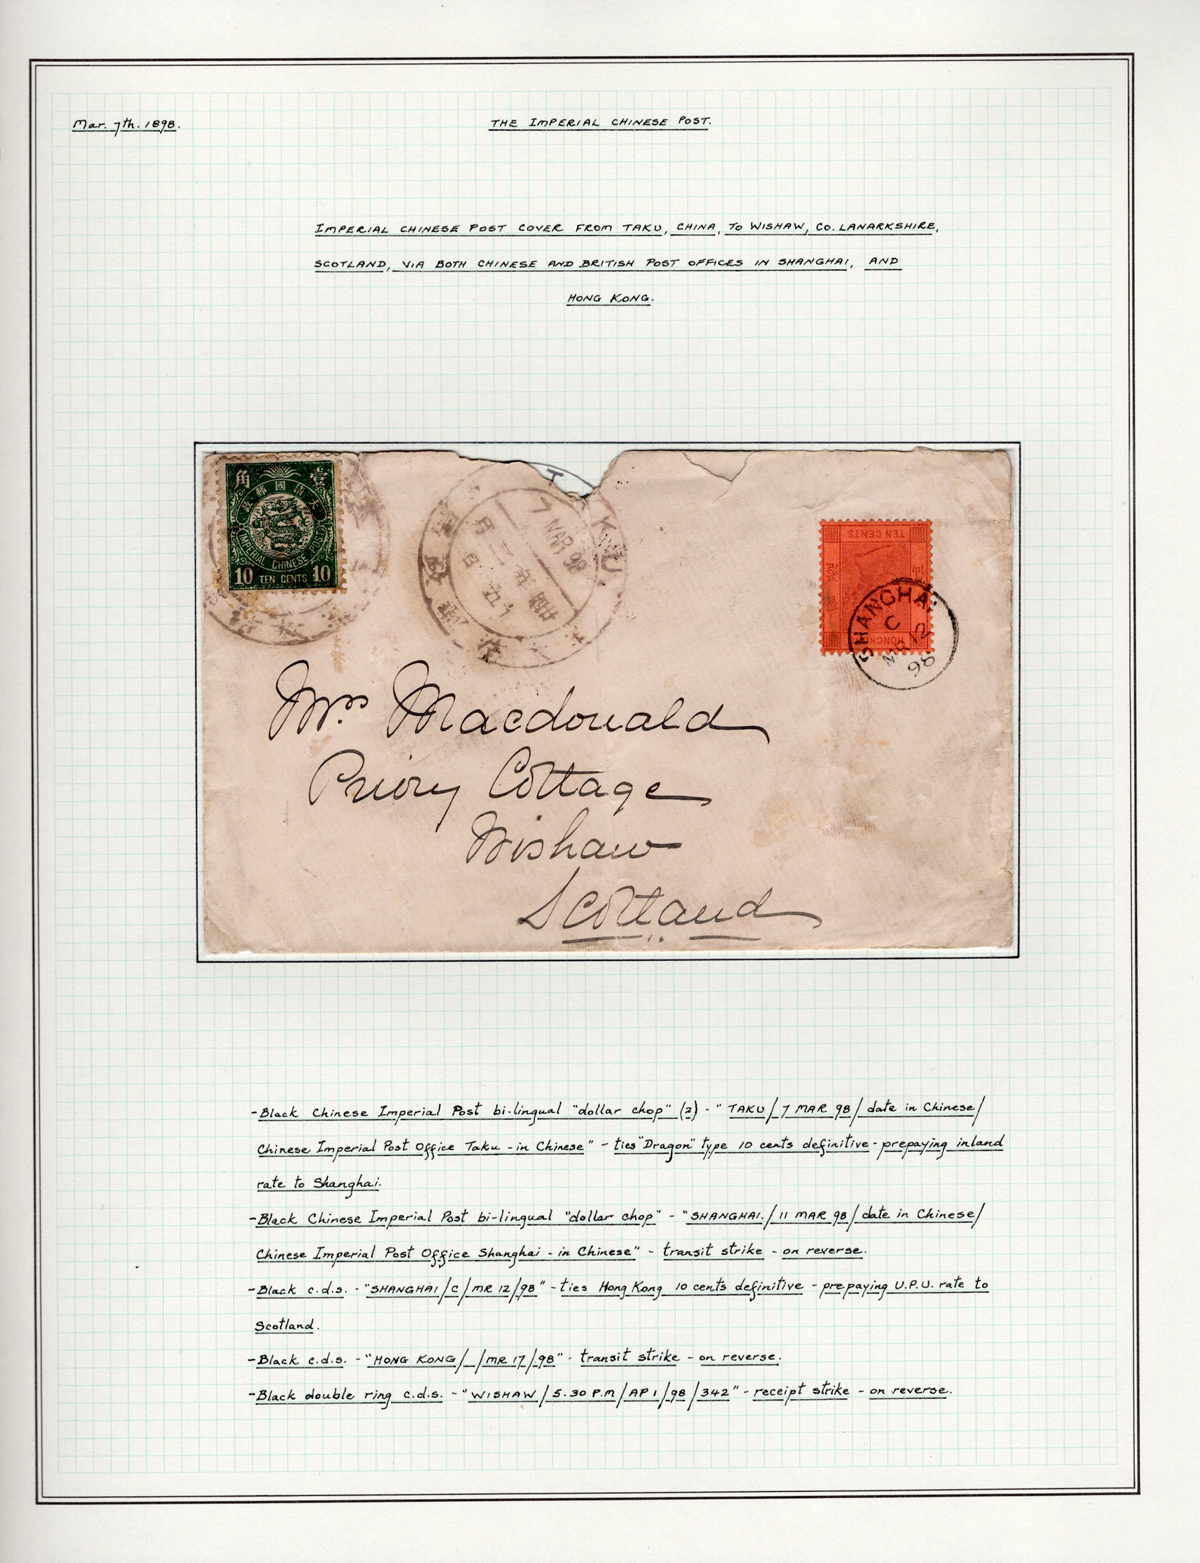 Mar. 7th. 1898.
THE IMPERIAL CHINESE POST.
IMPERIAL CHINESE POST COVER FROM TAKU, CHINA, TO WISHAW, CO. LANARKSHIRE,
SCOTLAND, VIA BOTH CHINESE AND BRITISH POST OFFICES IN SHANGHAI, AND
HONG KONG.
角 壹
IMPERIAL CHINESE POST
10 TEN CENTS 10
T KU
7 MAR 98
TEN CENTS
HONGK
SHANGHAI
C
MR 12
98
Mrs Macdonald
Priory Cottage
Wishaw
Scotland
-Black Chinese Imperial Post bi-lingual "dollar chop" (2) - "TAKU/7 MAR 98/date in Chinese/
Chinese Imperial Post Office Taku - in Chinese" - ties "Dragon" type 10 cents definitive - prepaying inland
rate to Shanghai.
-Black Chinese Imperial Post bi-lingual "dollar chop" - "SHANGHAI./11 MAR 98/date in Chinese/
Chinese Imperial Post Office Shanghai - in Chinese" - transit strike - on reverse.
-Black c.d.s. - "SHANGHAI/C/MR 12/98" - ties Hong Kong 10 cents definitive - prepaying U.P.U. rate to
Scotland.
-Black c.d.s. - "HONG KONG/_/MR 17/98" - transit strike - on reverse.
-Black double ring c.d.s. - "WISHAW/5.30 P.M/AP 1/98/342" - receipt strike - on reverse.